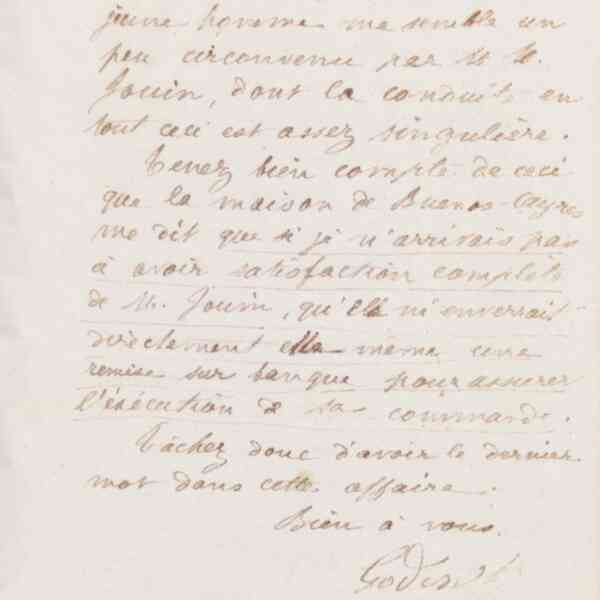 jeune homme me semble un
peu circonvenu par M. M.
Jouin, dont la conduite en
tout ceci est assez singulière.
Tenez bien compte de ceci
que la maison de Buenos-Ayres
me dit que si je n'arrivais pas
à avoir satisfaction complète
de M. Jouin, qu'elle m'enverrait
directement elle même une
remise sur banque pour assurer
l'exécution de sa commande.
Tâchez donc d'avoir le dernier
mot dans cette affaire.
Bien à vous.
Godin